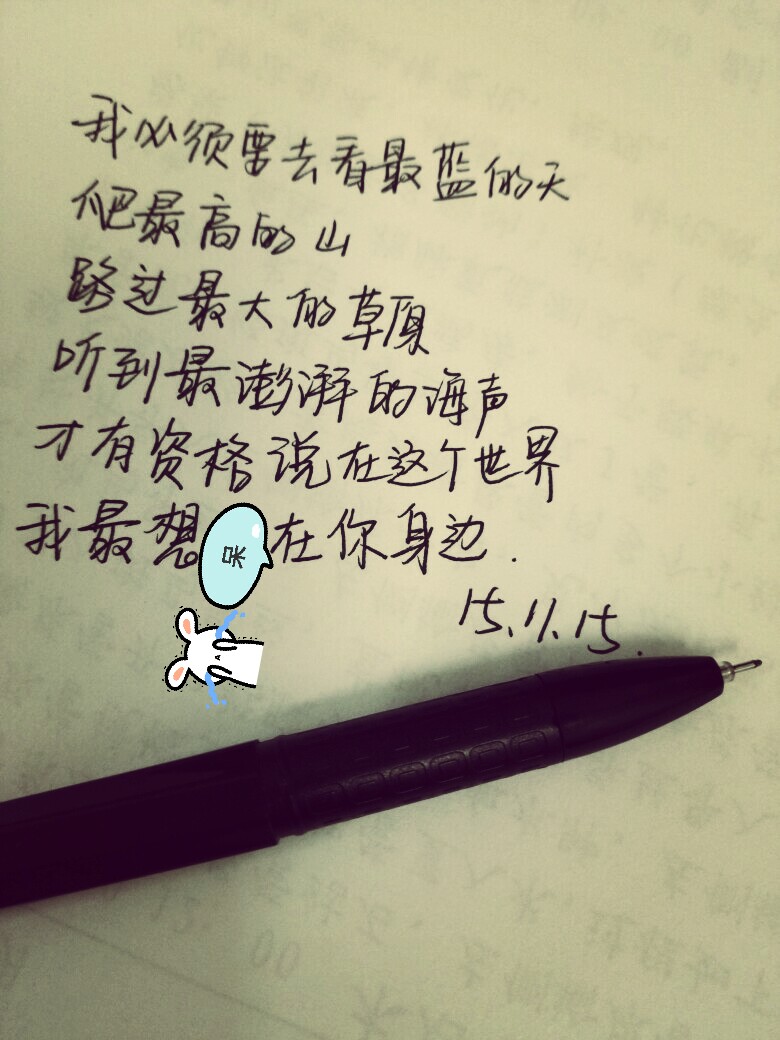 我必须要去看最蓝的天
爬最高的山
路过最大的草原
听到最澎湃的海声
才有资格说在这个世界
我最想呆在你身边.
15.11.15.